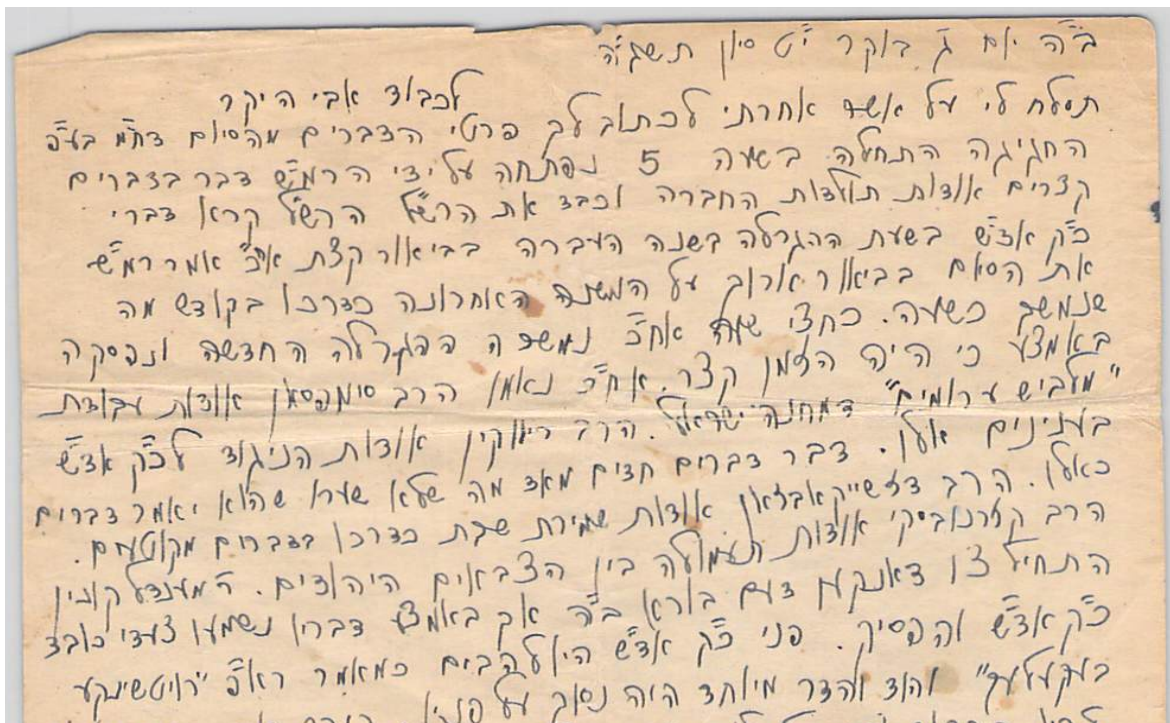 ב"ה יום ג' בוקר י"ט סיון תשג"ה
לכבוד אבי היקר
תסלח לי על אשר אחרתי לכתוב לך פרטי הדברים מהסיום דחמ בע"פ
החגיגה התחילה בשעה 5 נפתחה על ידי הרמ"ש דבר בדברים
קצרים אודות תולדות החברה וכבד את הרש"ל הרש"ל קרא דברי
כ"ק אד"ש בשעת ההגרלה בשנה העברה בביאור קצת אח"כ אמר רמ"ש
את הסיום בביאור ארוך על המשנה האחרונה כדרכו בקודש מה
שנמשך כשעה. כחצי שעה אח"כ נמשכה ההגרלה החדשה ונפסקה
באמצע כי היה הזמן קצר. אח"כ נאמן הרב סימפסאן אודות עבודת
"מלביש ערומים" דמחנה ישראל. הרב ריווקין אודות הניגוד לכ"ק אד"ש
בענינים אלו. דבר דברים חדים מאד מה שלא שערו שהוא יאמר דברים
כאלו. הרב דזשייקאבזאן אודות שמירת שבת כדרכו בדברים מקוטעים.
הרב קזרנובסקי אודות תעמולה בין הצבאים היהודים. ה' מענדל קונין
התחיל צו דאנקען דעם בורא ב"ה אך באמצע דבריו נשמעו צעדי כובד
כ"ק אד"ש והפסיק. פני כ"ק אד"ש היו להבים כמאמר רא"פ "רויטשינקע
בעקעלעך" והוד והדר מיוחד היה נסוך על פניו